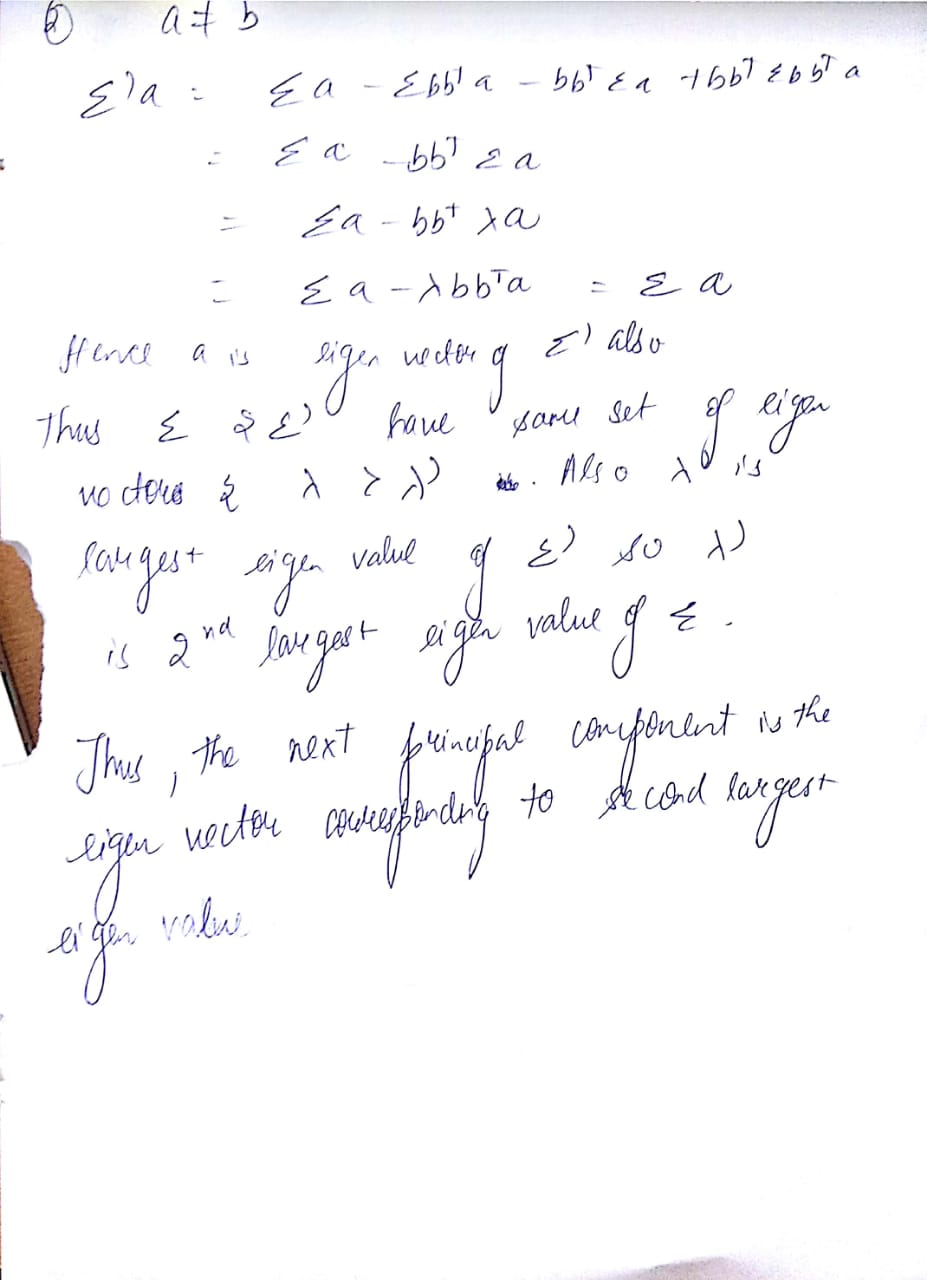 ② a ≠ b
Σ'a = Σa - Σbbᵀa - bbᵀΣa + bbᵀΣbbᵀa
= Σa - bbᵀΣa
= Σa - bbᵀλa
= Σa - λbbᵀa = Σa
Hence a is eigen vector of Σ' also
Thus Σ & Σ' have same set of eigen
vectors & λ > λ' . Also λ' is
largest eigen value of Σ' so λ'
is 2nd largest eigen value of Σ.
Thus, the next principal component is the
eigen vector corresponding to second largest
eigen value